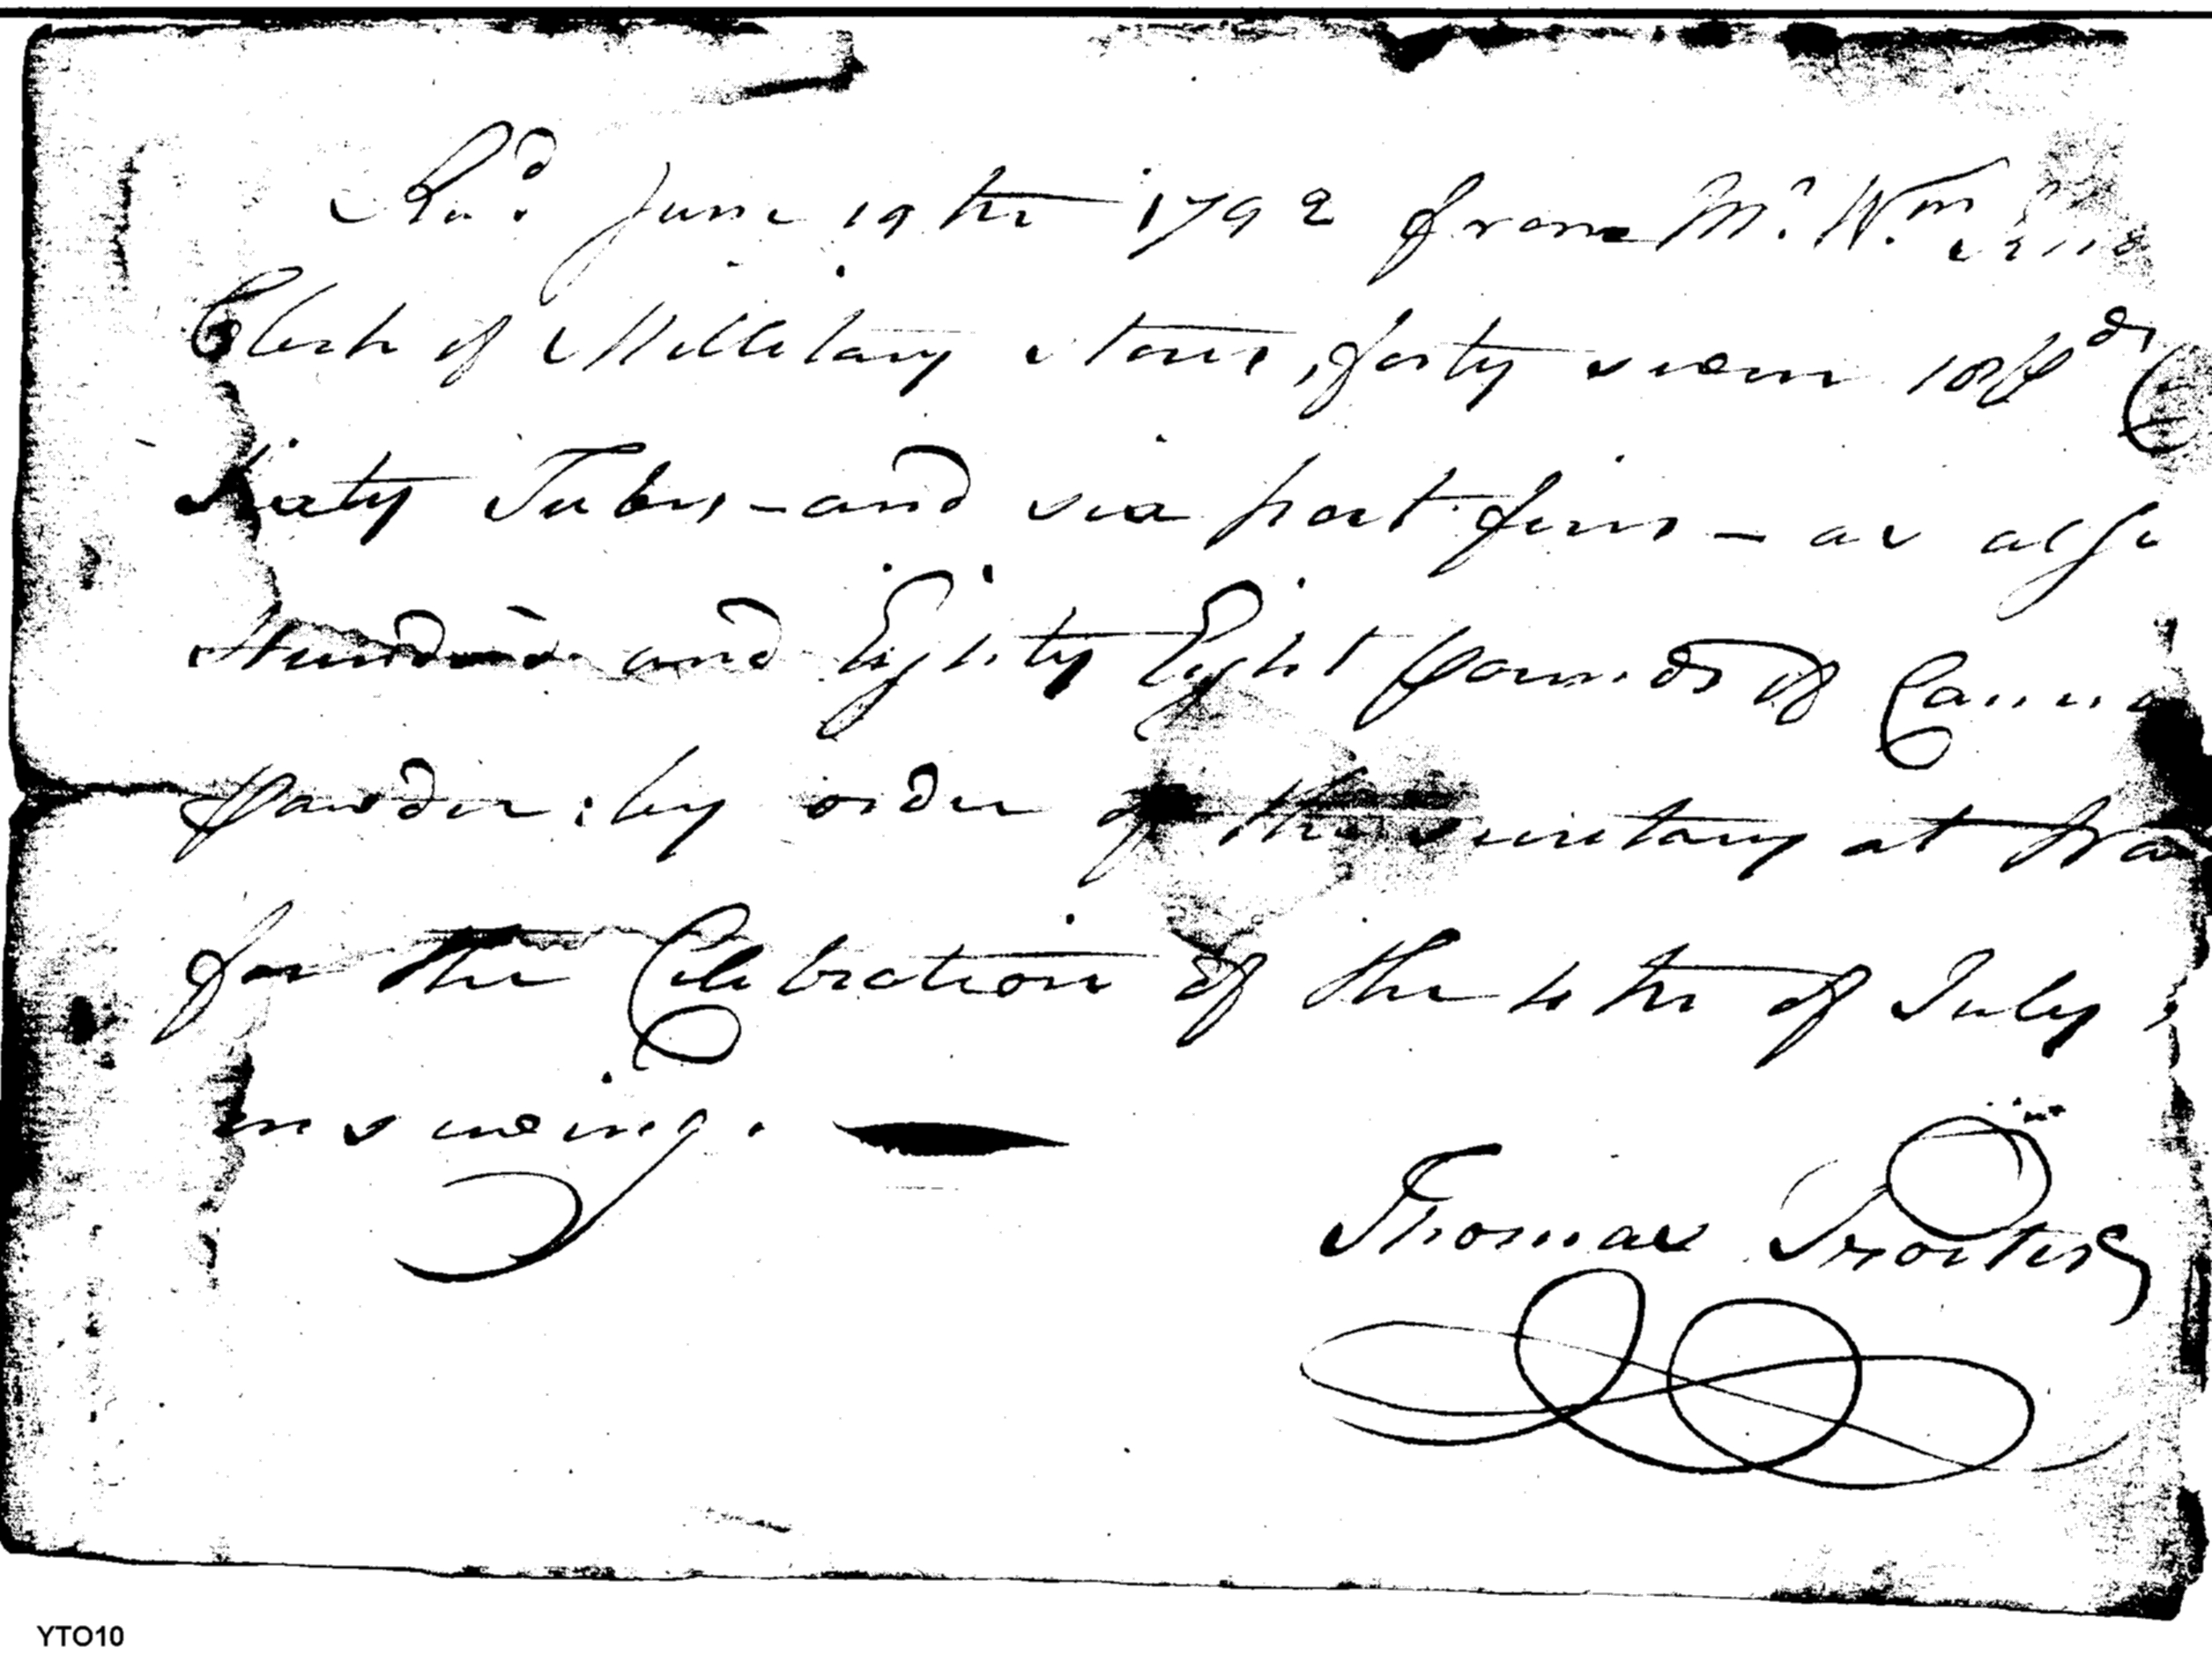 Recd. June 19th 1792 from Mr. Wm.
Clerk of Millitary stores, forty seven
Sixty Tubes, – and six port fires – as also
Hundred and Eighty Eight pounds of Canno
powder: by order of the secretary at War
for the Celebration of the 4th of July,
insueing.
Thomas Procter
YTO10